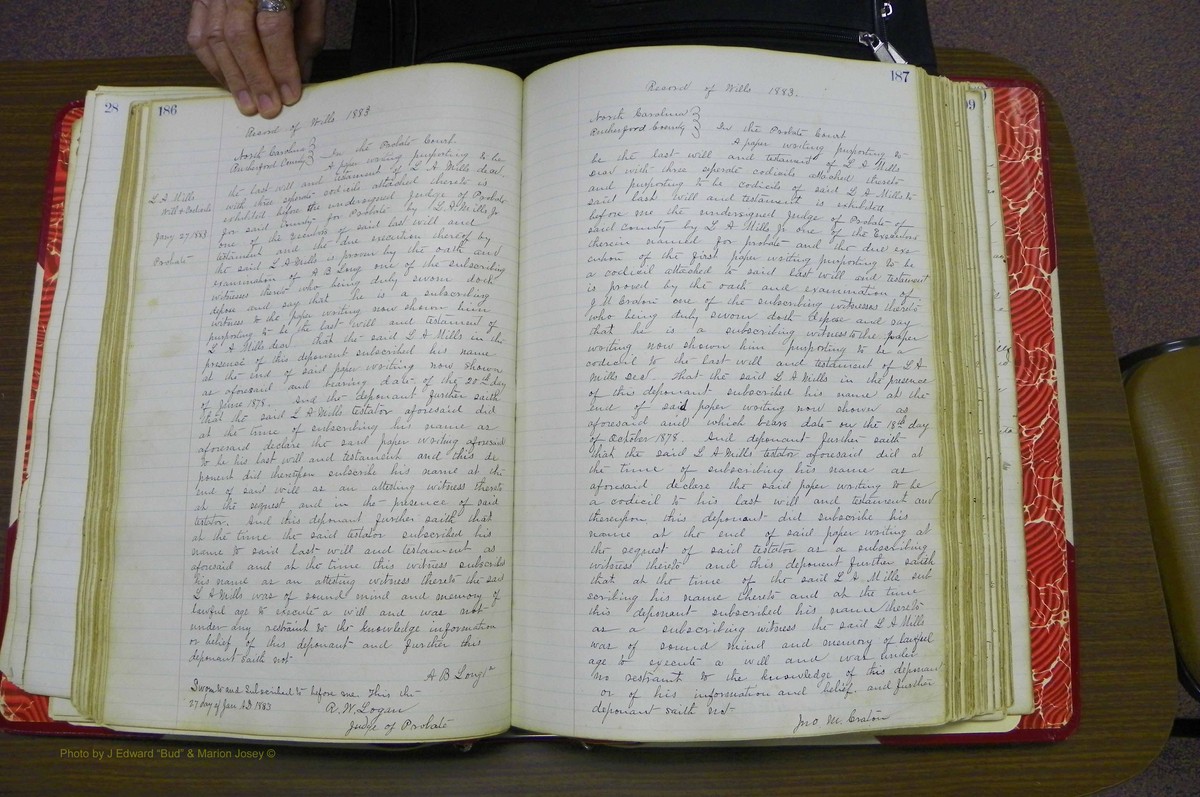 28
186
Record of Wills 1883
North Carolina
Rutherford County } In the Probate Court.
A paper writing purporting to be
the last will and testament of L A Mills decd.
with three seperate codicils attached thereto is
exhibited before the undersigned Judge of Probate
for said County for Probate by L A Mills Jr
one of the Executors of said last will and
testament and the due execution thereof by
the said L A Mills is proven by the oath and
examination of A B Long one of the subscribing
witnesses thereto who being duly sworn doth
depose and say that he is a subscribing
witness to the paper writing now shown him
purporting to be the last will and testament of
L A Mills decd. that the said L A Mills in the
presence of this deponent subscribed his name
at the end of said paper writing now shown
as aforesaid and bearing date of the day
of June 1878. And the deponant further saith
that the said L A Mills testator aforesaid did
at the time of subscribing his name as
aforesaid declare the said paper writing aforesaid
to be his last will and testament and this de
ponent did thereupon subscribe his name at the
end of said will as an attesting witness thereto
at the request and in the presence of said
testator. And this deponant further saith that
at the time the said testator subscribed his
name to said last will and testament as
aforesaid and at the time this witness subscribed
his name as an attesting witness thereto the said
L A Mills was of sound mind and memory of
lawful age to execute a will and was not
under any restraint to the knowledge information
or belief of this deponant and further this
deponant saith not
A B Long
Sworn to and subscribed to before me this the
27 day of Jan. A.D 1883
R. W. Logan
Judge of Probate
L A Mills
Will & Codicils
Jany 27. 1883
Probate
187
Record of Wills 1883.
North Carolina
Rutherford County } In the Probate Court
A paper writing purporting to
be the last will and testament of L A Mills
decd with three seperate codicils attached thereto
and purporting to be codicils of said L A Mills to
said last will and testament is exhibited
before me the undersigned Judge of Probate of
said County by L A Mills Jr one of the Executors
therein named for probate and the due exe
cution of the first paper writing purporting to be
a codicil attached to said last will and testament
is proved by the oath and examination of
J. M Craton one of the subscribing witnesses thereto
who being duly sworn doth depose and say
that he is a subscribing witness to the paper
writing now shown him purporting to be a
codicil to the last will and testament of L A
Mills decd. that the said L A Mills in the presence
of this deponant subscribed his name at the
end of said paper writing now shown as
aforesaid and which bears date on the 18th day
of October 1878. And deponant further saith
that the said L A Mills testator aforesaid did at
the time of subscribing his name as
aforesaid declare the said paper writing to be
a codicil to his last will and testament and
thereupon this deponant did subscribe his
name at the end of said paper writing at
the request of said testator as a subscribing
witness thereto and this deponent further saith
that at the time of the said L A Mills sub
scribing his name thereto and at the time
this deponant subscribed his name thereto
as a subscribing witness the said L A Mills
was of sound mind and memory of lawful
age to execute a will and was under
no restraint to the knowledge of this deponant
or of his information and belief. and further
deponant saith not
Jno M. Craton
Photo by J Edward "Bud" & Marion Josey ©